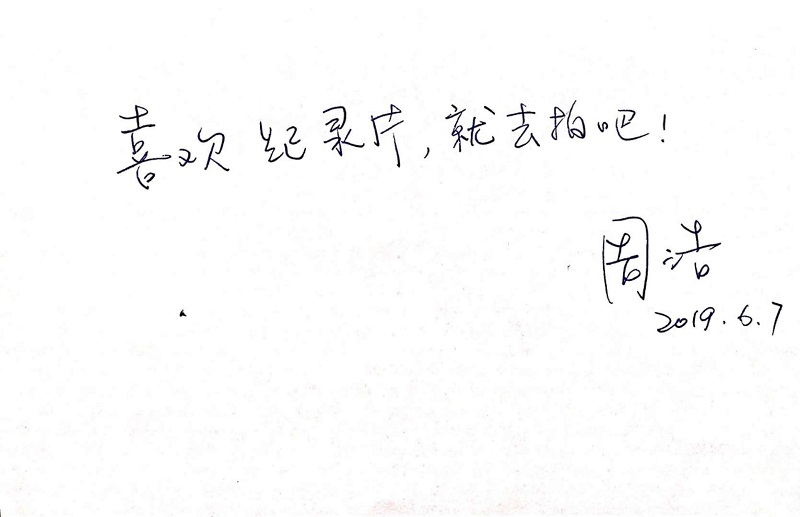 喜欢纪录片,就去拍吧!
周浩
2019.6.7